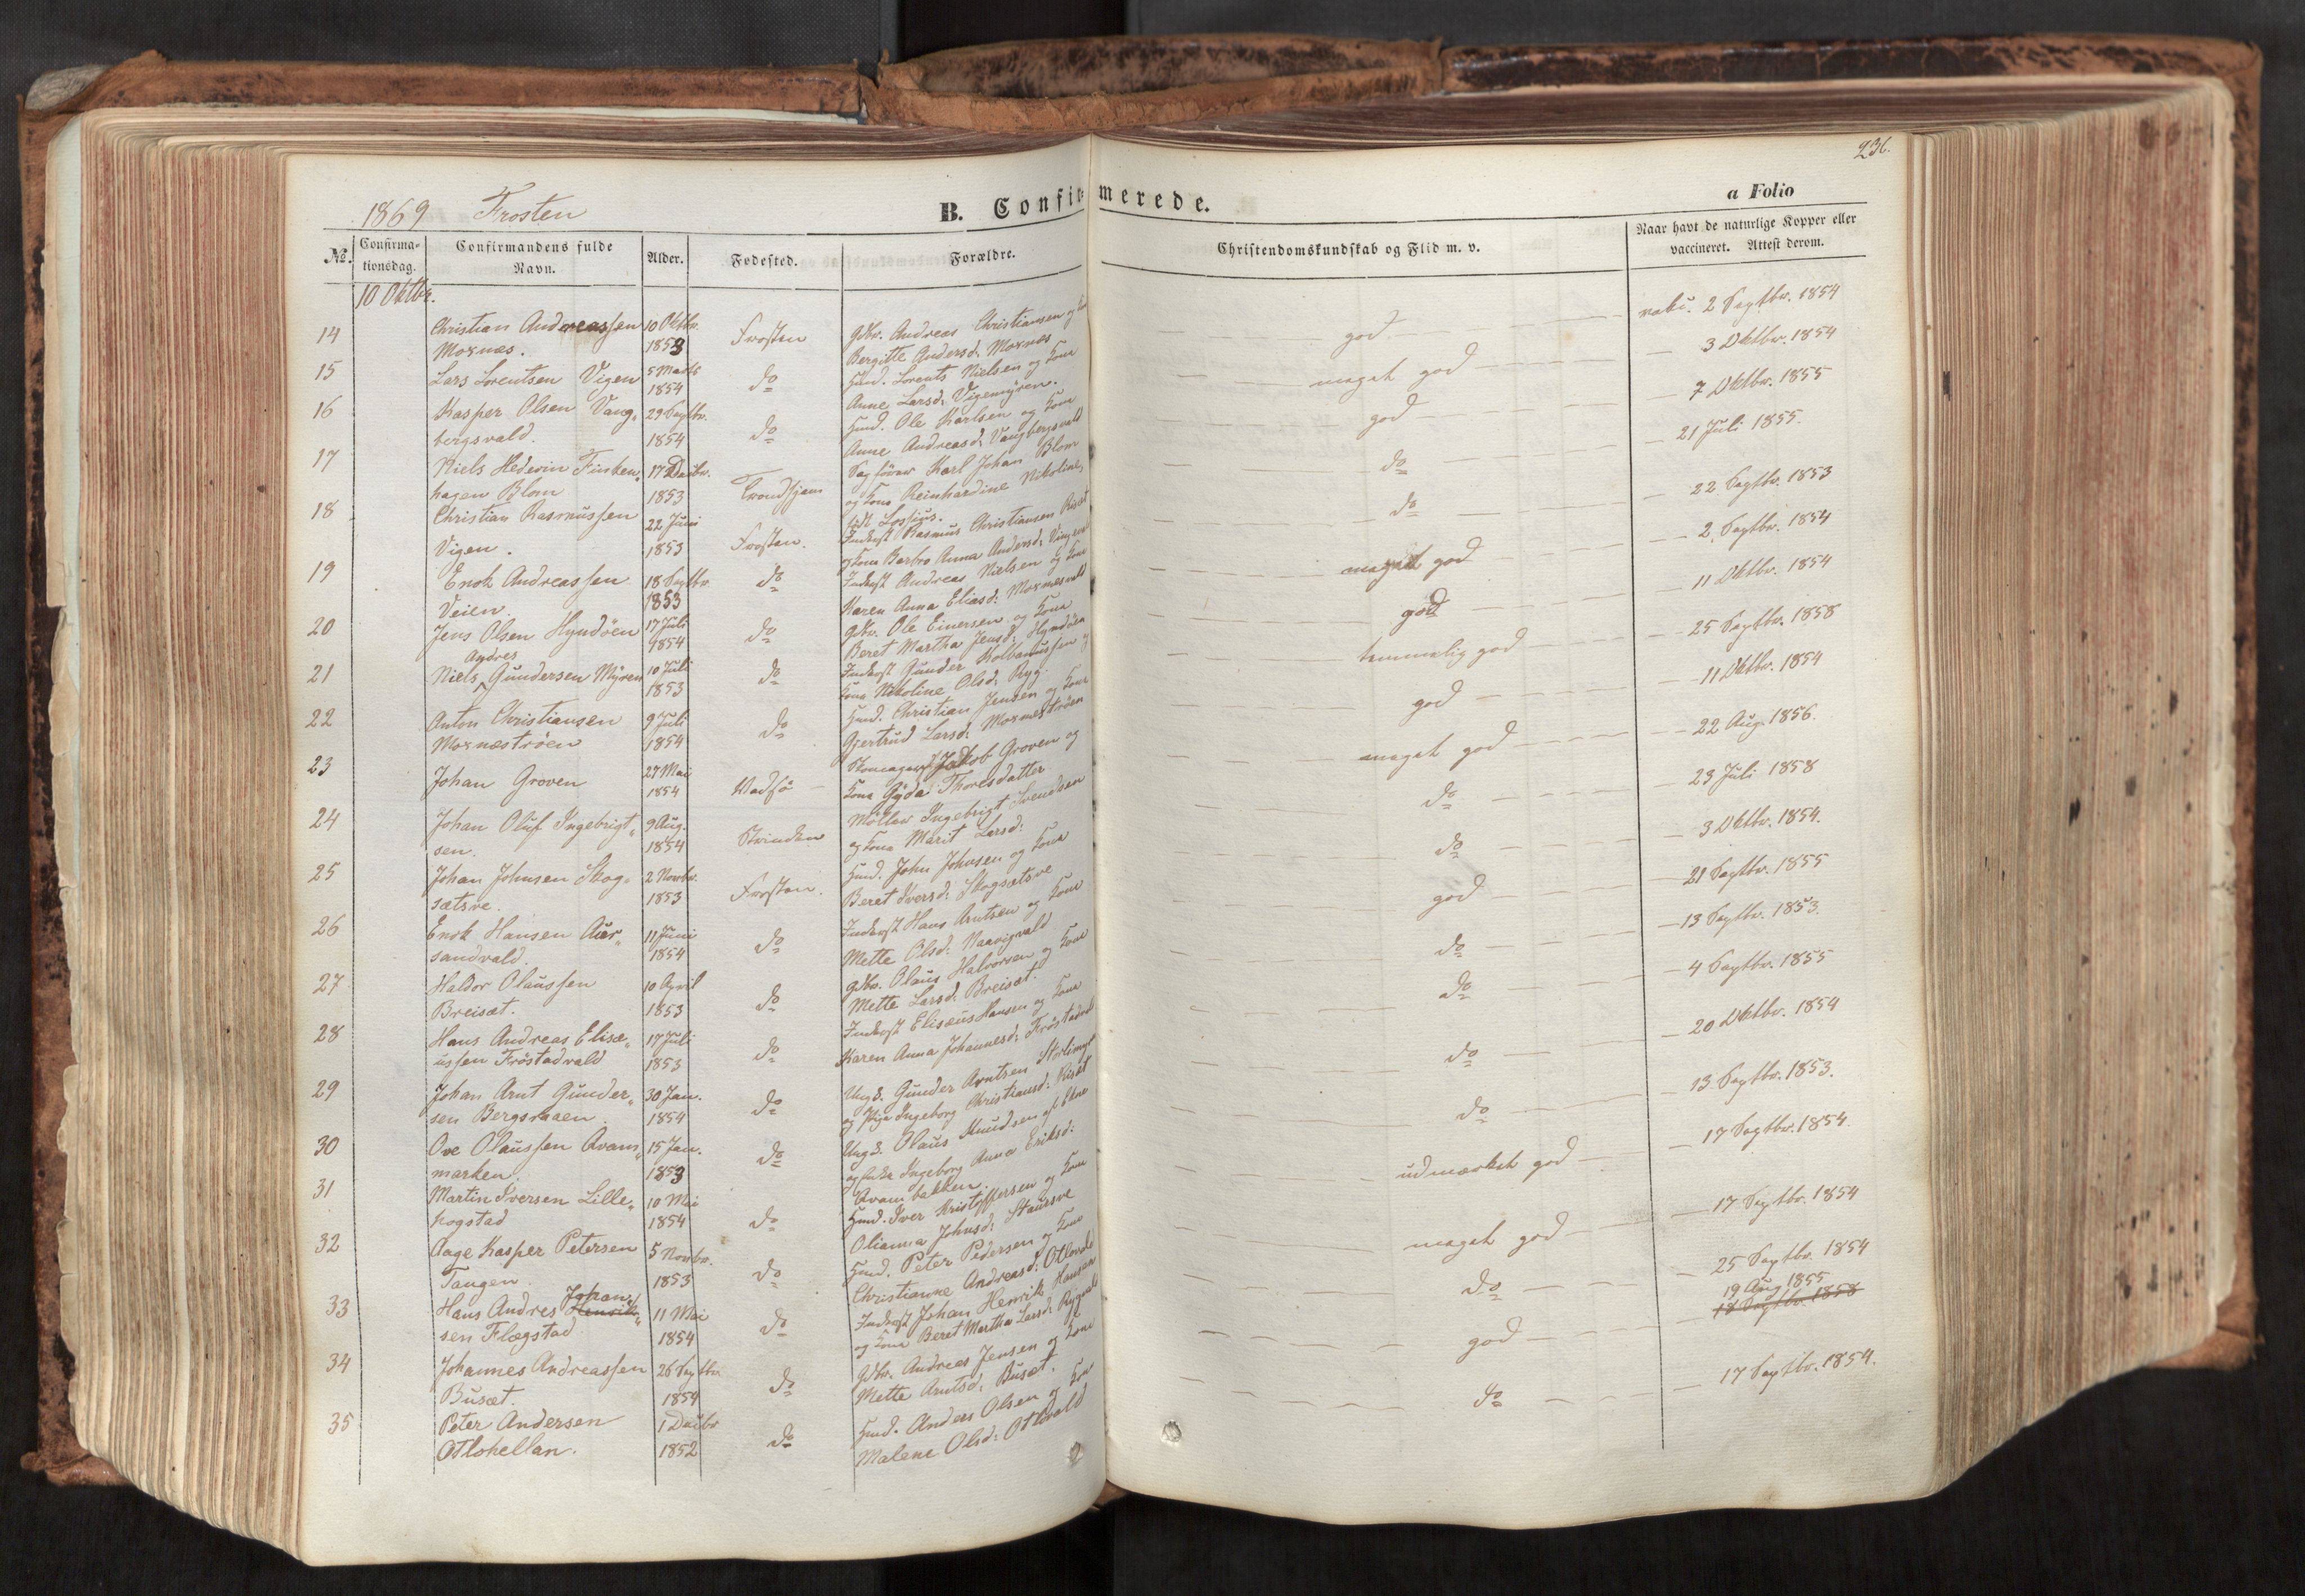 236.
1869 Frosten
B. Confirmerede.
a Folio
No. Confirmationsdag. Confirmandens fulde Navn. Alder. Fødested. Forældre. Christendomskundskab og Flid m. v. Naar havt de naturlige Kopper eller vaccineret. Attest derom.
10 Oktbr.
14 Christian Andreassen 10 Oktbr. Frosten Gbr. Andreas Christiansen og
Moxnæs. 1853 Bergitte Andersd: Moxnæs god vakc. 2 Septbr. 1854
15 Lars Lorentsen Vigen 5 Marts do Husmd. Lorents Nielsen og Kone
1854 Anne Larsd: Vigemyren. meget god 3 Oktbr. 1854
16 Kasper Olsen Vang„ 29 Septbr. do Husmd. Ole Karlsen og Kone
bergsvald. 1854 Anne Andreasd: Vangbergsvald god 7 Oktbr. 1855
17 Niels Hederin Finken„ 17 Decbr. Trondhjem Sagfører Karl Johan Blom
hagen Blom 1853 og Kone Reinhardine Nikoline,
født Lossius. do 21 Juli 1855.
18 Christian Rasmussen 22 Juni Frosten. Inderst Rasmus Christiansen Risæt
Vigen. 1853 og Kone Barbro Anna Andersd: do 22 Septbr. 1853
19 Enok Andreassen 18 Septbr. do Inderst Andreas Nielsen og Kone
Veien. 1853 Karen Anna Eliasd: Moxnæsvald meget god 2 Septbr. 1854
20 Jens Olsen Hyndøen 17 Juli do Gbr. Ole Einersen og Kone
1854 Beret Martha Jensd: Hyndøen god 11 Oktbr. 1854
Andres
21 Niels Gundersen Myren 10 Juli do Inderst Gunder Kolbanussen og
1853 Kone Nikoline Olsd: Ryg. temmelig god 25 Septbr. 1858
22 Anton Christiansen 9 Juli do Husmd. Christian Jensen og Kone
Moxnæstrøen 1854 Gjertrud Larsd: Moxnæstrøen god 11 Oktbr. 1854
23 Johan Groven 27 Mai Vadsø Skomager Jakob Groven og
1854 Kone Gyda Thoresdatter meget god 22 Aug. 1856.
24 Johan Oluf Ingebrigt„ 9 Aug. Strinden Møller Ingebrigt Svendsen
sen. 1854 og Kone Marit Larsd: do 23 Juli 1858
25 Johan Johnsen Skog„ 2 Novbr. Frosten. Husmd. John Johnsen og Kone
sætsve. 1853 Beret Iversd: Skogsætsve do 3 Oktbr. 1854.
26 Enok Hansen Aur„ 11 Juni do Inderst Hans Arntsen og Kone
sandvald. 1854 Mette Olsd: Naavigvald god 21 Septbr. 1855
27 Haldor Olaussen 10 April do Gbr. Olaus Halvorsen og Kone
Breisæt. 1853 Mette Larsd: Breisæt. do 13 Septbr. 1853.
28 Hans Andreas Elisæ„ 17 Juli do Inderst Elisæus Hansen og Kone
ussen Frøstadvald 1853 Karen Anna Johannesd: Frøstadvald do 4 Septbr. 1855
29 Johan Arnt Gunder„ 30 Jan. do Ungk. Gunder Arntsen
sen Bergsraaen. 1854 og Pige Ingeborg Christiansd: Risæt do 20 Oktbr. 1854
30 Ove Olaussen Kvam„ 15 Jan. do Ungk. Olaus Knudsen af Ekne
marken. 1853 og Enke Ingeborg Anna Eriksd:
Kvambakken. do 13 Septbr. 1853.
31 Martin Iversen Lille„ 10 Mai do Husmd. Iver Kristoffersen og Kone
hogstad 1854 Olianna Johnsd: Staursve udmærket god 17 Septbr. 1854.
32 Aage Kasper Petersen 5 Novbr. do Husmd. Peter Pedersen og Kone
Tangen. 1853 Christianne Andreasd: meget god 17 Septbr. 1854
Johan
33 Hans Andres Henrik„ 11 Mai do Inderst Johan Henrik Hansen
sen Flægstad 1854 og Kone Beret Martha Larsd: do 25 Septbr. 1854
34 Johannes Andreassen 26 Septbr. do Gbr. Andreas Jensen og Kone
Busæt. 1854 Mette Arntsd: Busæt. god 19 Aug 1855
18 Septbr. 1858
35 Peter Andersen 1 Decbr. do Husmd. Anders Olsen og Kone
Otlohellan. 1852 Malene Olsd: do 17 Septbr. 1854.